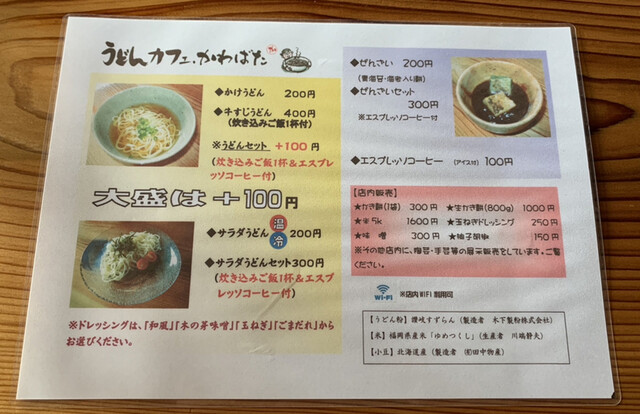 うどんカフェ.かわばた
◆かけうどん 200円
◆牛すじうどん 400円
(炊き込みご飯1杯付)
※うどんセット +100円
(炊き込みご飯1杯&エスプ
レッソコーヒー付)
大盛は+100円
◆サラダうどん 温 冷 200円
◆サラダうどんセット300円
(炊き込みご飯1杯&エスプ
レッソコーヒー付)
※ドレッシングは、「和風」「木の芽味噌」「玉ねぎ」「ごまだれ」から
お選びください。
◆ぜんざい 200円
(青海苔・海老入り餅)
◆ぜんざいセット
300円
※エスプレッソコーヒー付
◆エスプレッソコーヒー (アイス付) 100円
【店内販売】
★かき餅(1袋) 300円 ★生かき餅(800g) 1000円
★米5k 1600円 ★玉ねぎドレッシング 250円
★味噌 300円 ★柚子胡椒 150円
※その他店内に、陶芸・手芸等の展示販売をしています。ご覧
ください。
Wi-Fi ※店内WIFI利用可
【うどん粉】讃岐すずらん(製造者 木下製粉株式会社)
【米】福岡県産米「ゆめつくし」(生産者 川端静夫)
【小豆】北海道産(製造者 ㈲田中物産)